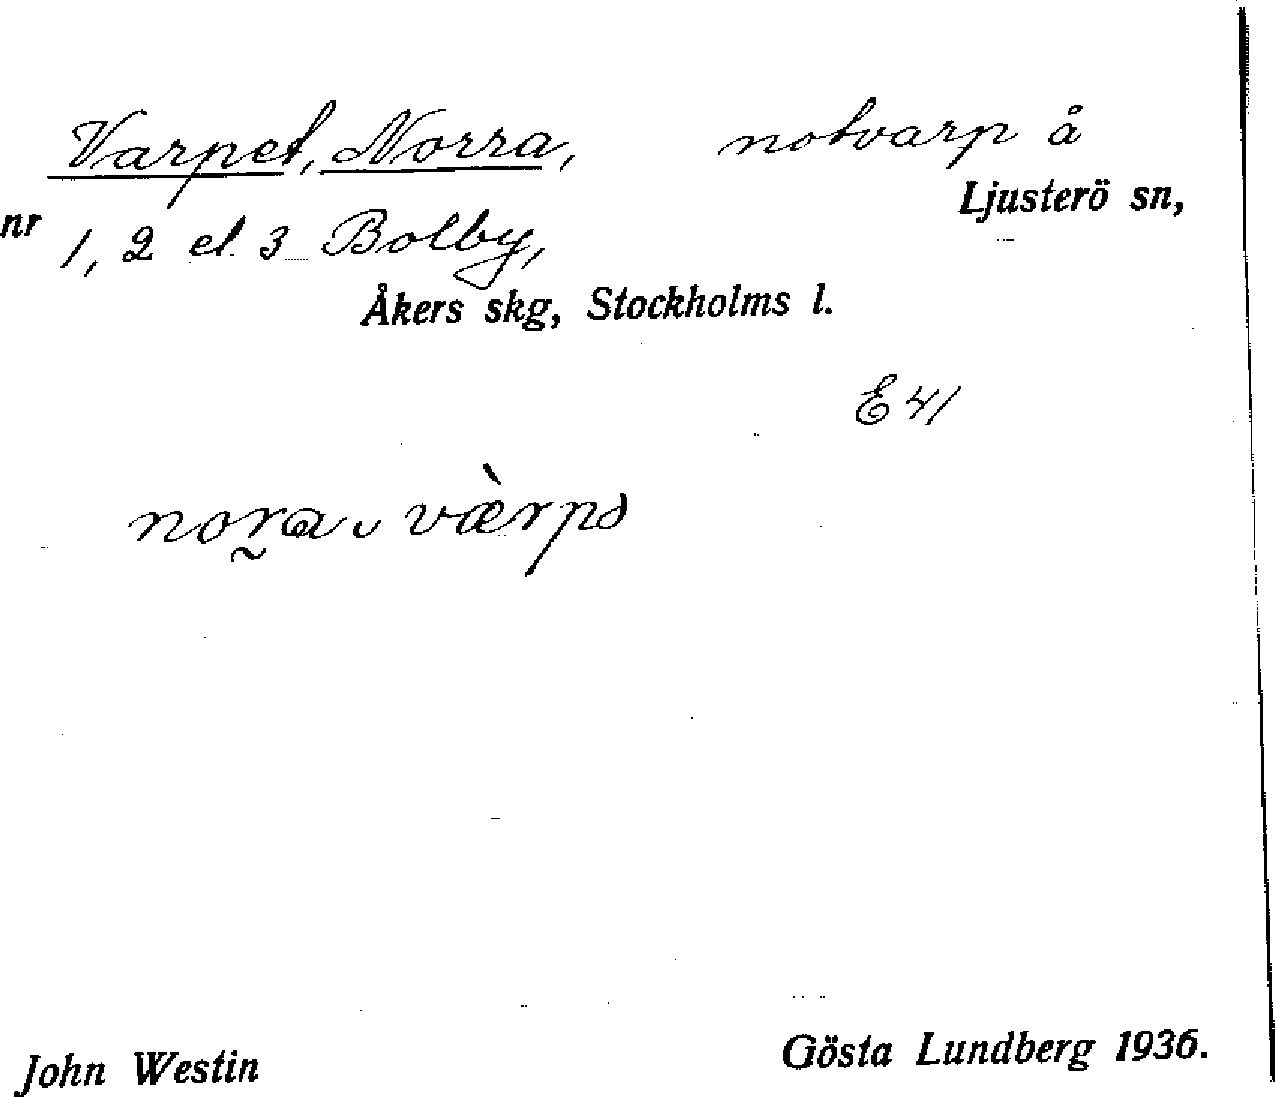 Varpet, Norra, notvarp å
Ljusterö sn,
nr 1, 2 el. 3 Bolby,
Åkers skg, Stockholms l.
E 41
nor̰a ᴗ væ̀rpə
John Westin Gösta Lundberg 1936.